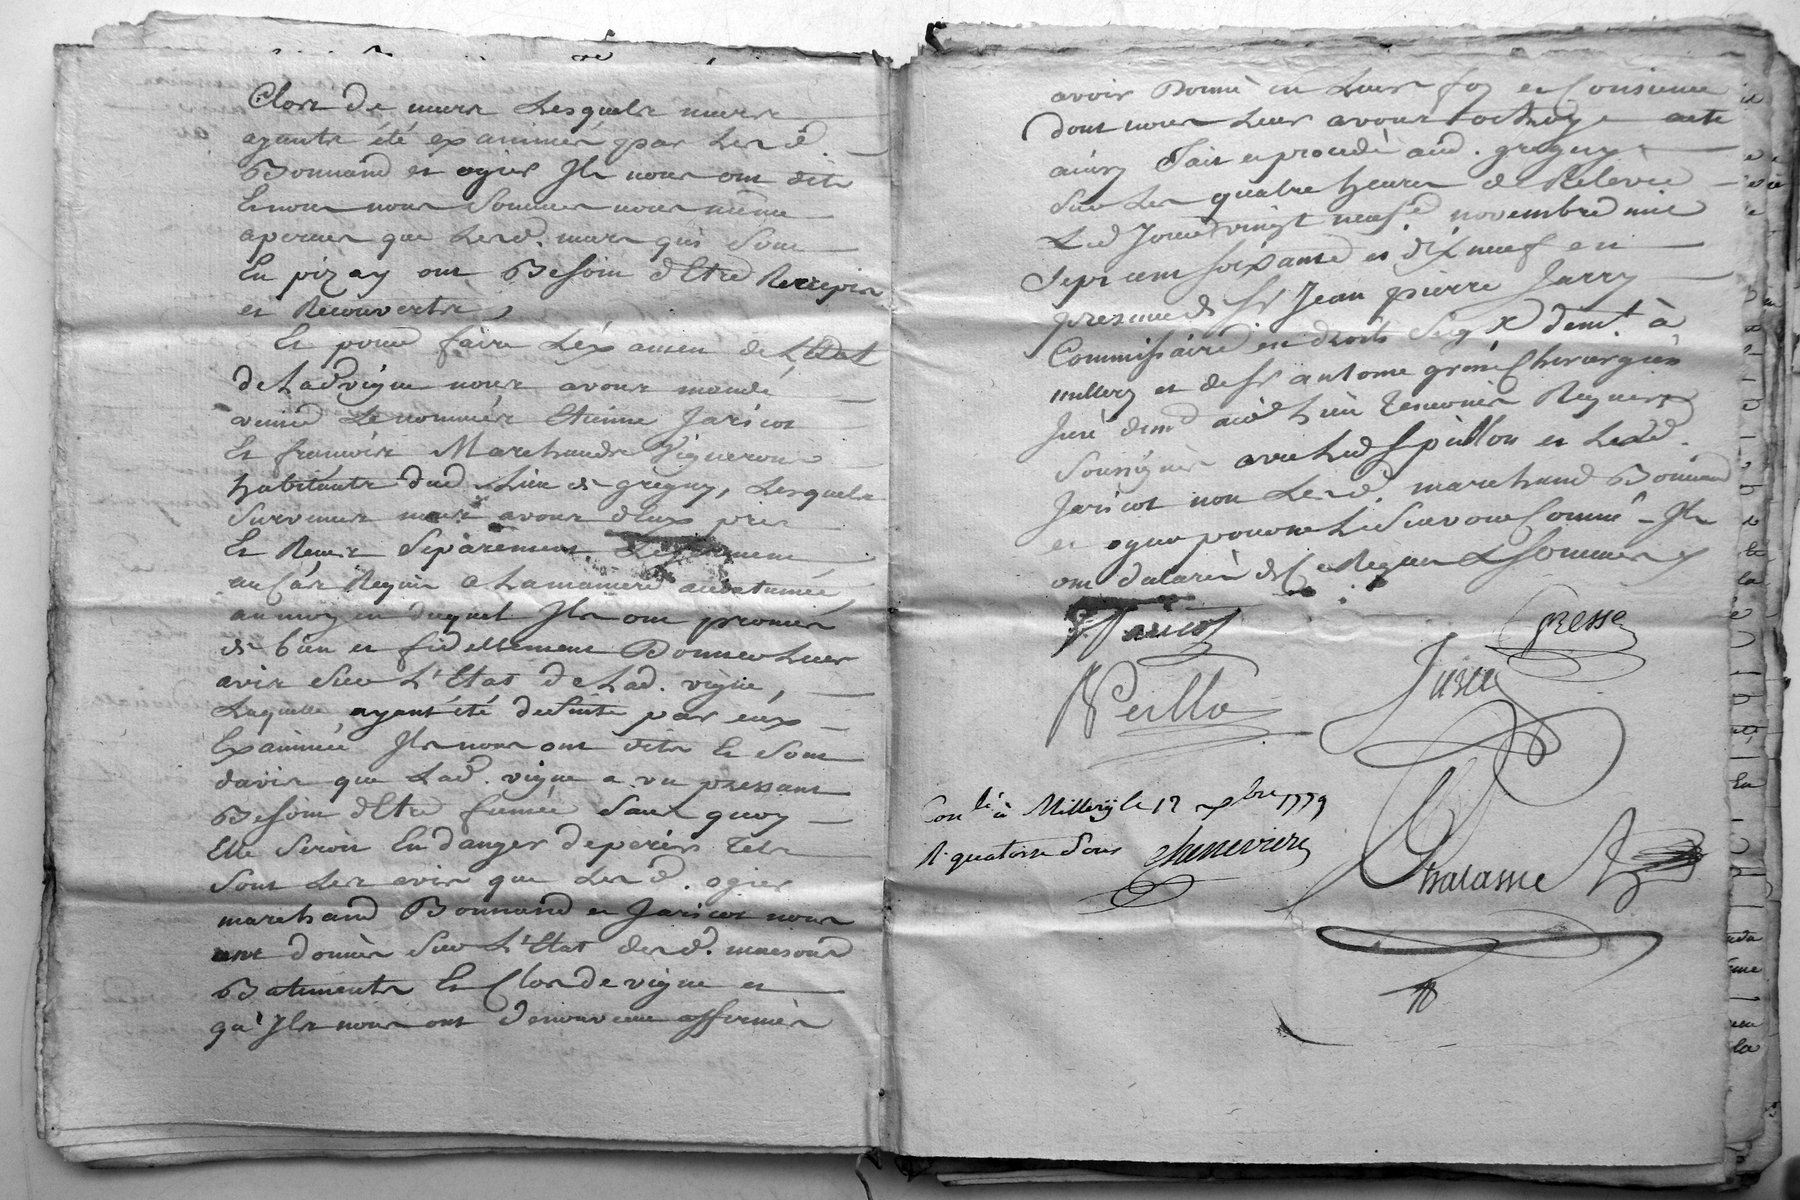 Clos de murs Lesquels murs
ayants été examinés par Lesd.
Bonnand et ogier Ils nous ont dits
Et nous nous Sommes nous même
aperçus que Lesd. murs qui Sont
En pizay ont Besoin d'Etre Recrepis
et Recouverts,
Et pour faire L'éxamen de L'Etat
de Lad vigne nous avons mandé
venir Le nommés Etienne Jaricot
Et francois Marchand Vignerons
habitants dud. Lieu de grigny, Lesquels
Survenus nous avons d'eux pris
Et Reçu Séparément Le serment
au Cas Requis a La maniere accoutumée
au moyen duquel Ils ont promis
de bien et fidellement Donner Leur
avis Sur L'Etat de Lad. vigne,
Laquelle ayant été de Suitte par eux
Examinée Ils nous ont dits Et Sont
d'avis que Lad. vigne a un pressant
Besoin d'Etre fumée Sans quoy
Elle Seroit En danger de perir Tels
Sont Les avis que Lesd. ogier
marchand Bonnand et Jaricot nous
ont donnés Sur L'Etat desd. maisons
Batiments Et Clos de vigne et
qu'Ils nous ont de nouveau affirmés
avoir Donné en Leurs foy et Consience
dont nous Leur avons octroyé acte
ainsy fait et procedé aud. grigny
Sur Les quatre heures de Relevée
Led Jour vingt neuf novembre mil
Sept cent soixante et dix neuf en
presence de Sr Jean pierre Jarry
Commissaire en droits Seigx demt. à
millery et de Sr antoine Chirurgien
Juré demt aud Lieu Temoins Requis
Soussignés avec Led Sr peillon et Led.
Jaricot non Lesd. marchand Bonnand
et ogier pour ne Le Scavoir Comme Ils
ont déclaré de Ce Requis & Sommés
Jaricot
Gresse
Peillon
Jarry
Conlé à Millery le 12 xbre 1779
R. quatorze Sous Chenevriere
Thalasse